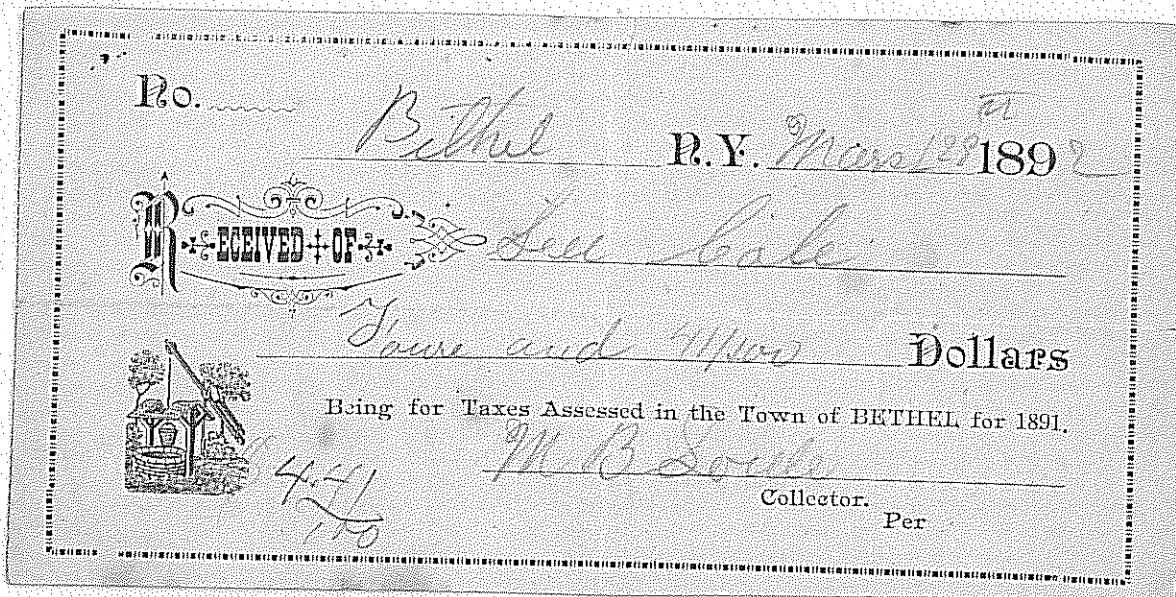 No.
Bethel N.Y. Mars 1892
RECEIVED OF
Cole
Foure and 41/100 Dollars
Being for Taxes Assessed in the Town of BETHEL for 1891.
M B
4.41
Collector.
Per